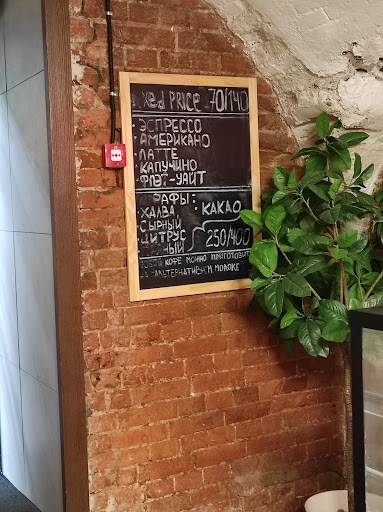 xed PRICE 70/140
ЭСПРЕССО
АМЕРИКАНО
ЛАТТЕ
КАПУЧИНО
ФЛЭТ-УАЙТ
АФЫ:
ХАЛВА КАКАО
СЫРНЫЙ
ЦИТРУС
НЫЙ 250/400
КОФЕ МОЖНО ПРИГОТОВИТЬ
НА АЛЬТЕРНАТИВНОМ МОЛОКЕ